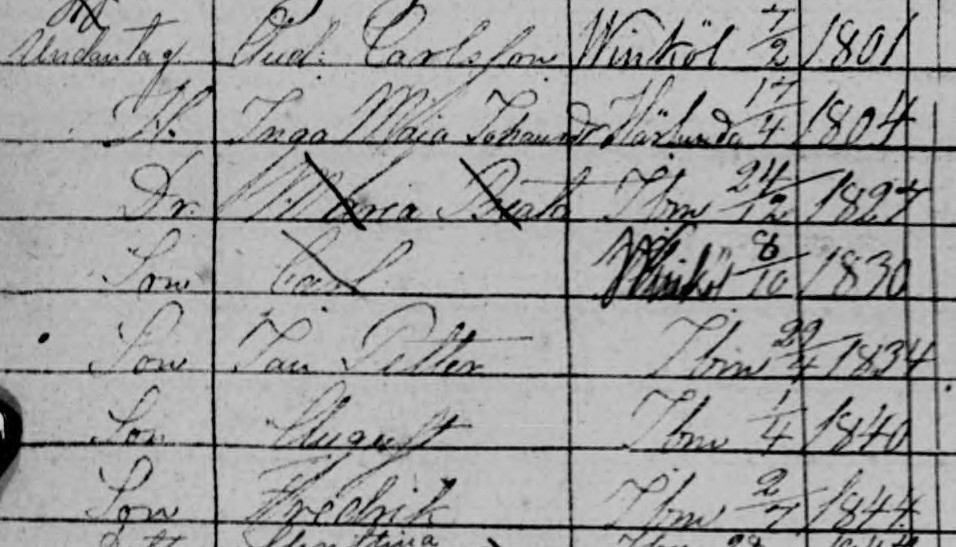 Undantag And: Carlsson Winköl 7/2 1801
H. Inga Maja Johansdr Härlunda 17/4 1804
Dr. Maria Beata Ibm 24/12 1827
Son Carl Winköl 8/10 1830
Son Jan Petter Ibm 29/4 1834
Son August Ibm 1/4 1840
Son Fredrik Ibm 2/7 1844
Christina